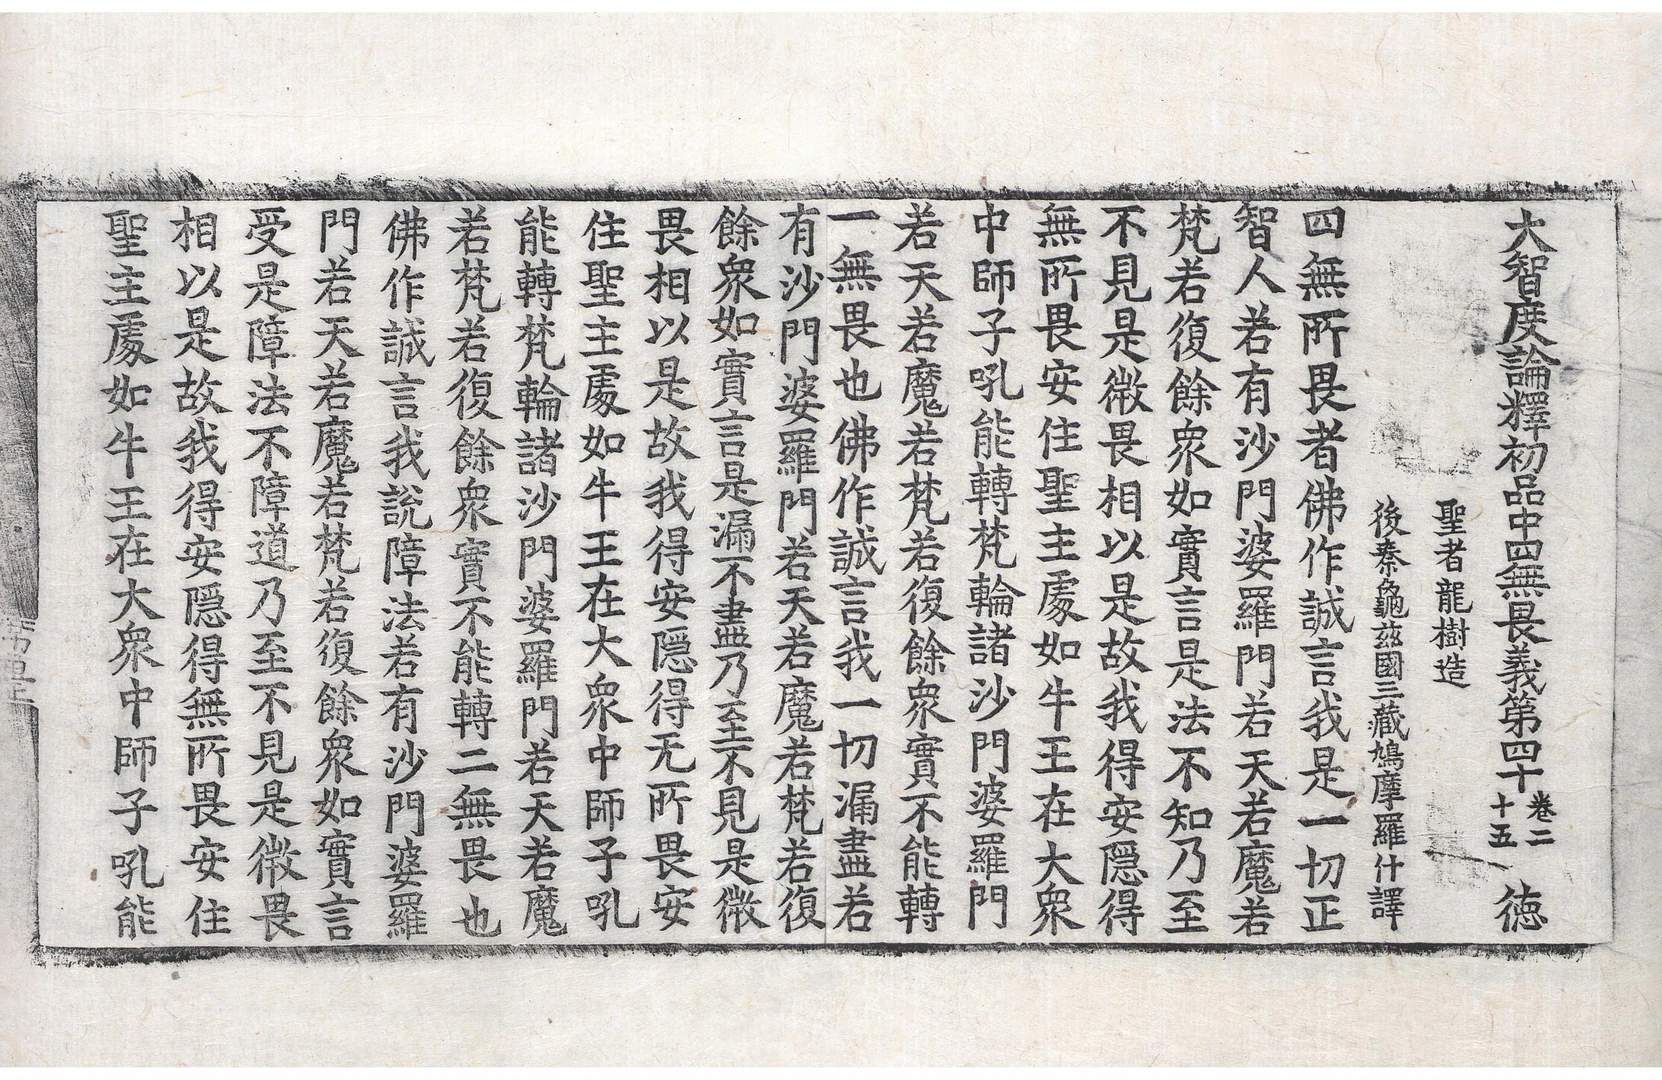 大智度論釋初品中四無畏義第四十 卷二十五 德
聖者龍樹造
後秦龜茲國三藏鳩摩羅什譯
四無所畏者佛作誠言我是一切正
智人若有沙門婆羅門若天若魔若
梵若復餘衆如實言是法不知乃至
不見是微畏相以是故我得安隱得
無所畏安住聖主處如牛王在大衆
中師子吼能轉梵輪諸沙門婆羅門
若天若魔若梵若復餘衆實不能轉
一無畏也佛作誠言我一切漏盡若
有沙門婆羅門若天若魔若梵若復
餘衆如實言是漏不盡乃至不見是微
畏相以是故我得安隱得无所畏安
住聖主處如牛王在大衆中師子吼
能轉梵輪諸沙門婆羅門若天若魔
若梵若復餘衆實不能轉二無畏也
佛作誠言我說障法若有沙門婆羅
門若天若魔若梵若復餘衆如實言
受是障法不障道乃至不見是微畏
相以是故我得安隱得無所畏安住
聖主處如牛王在大衆中師子吼能